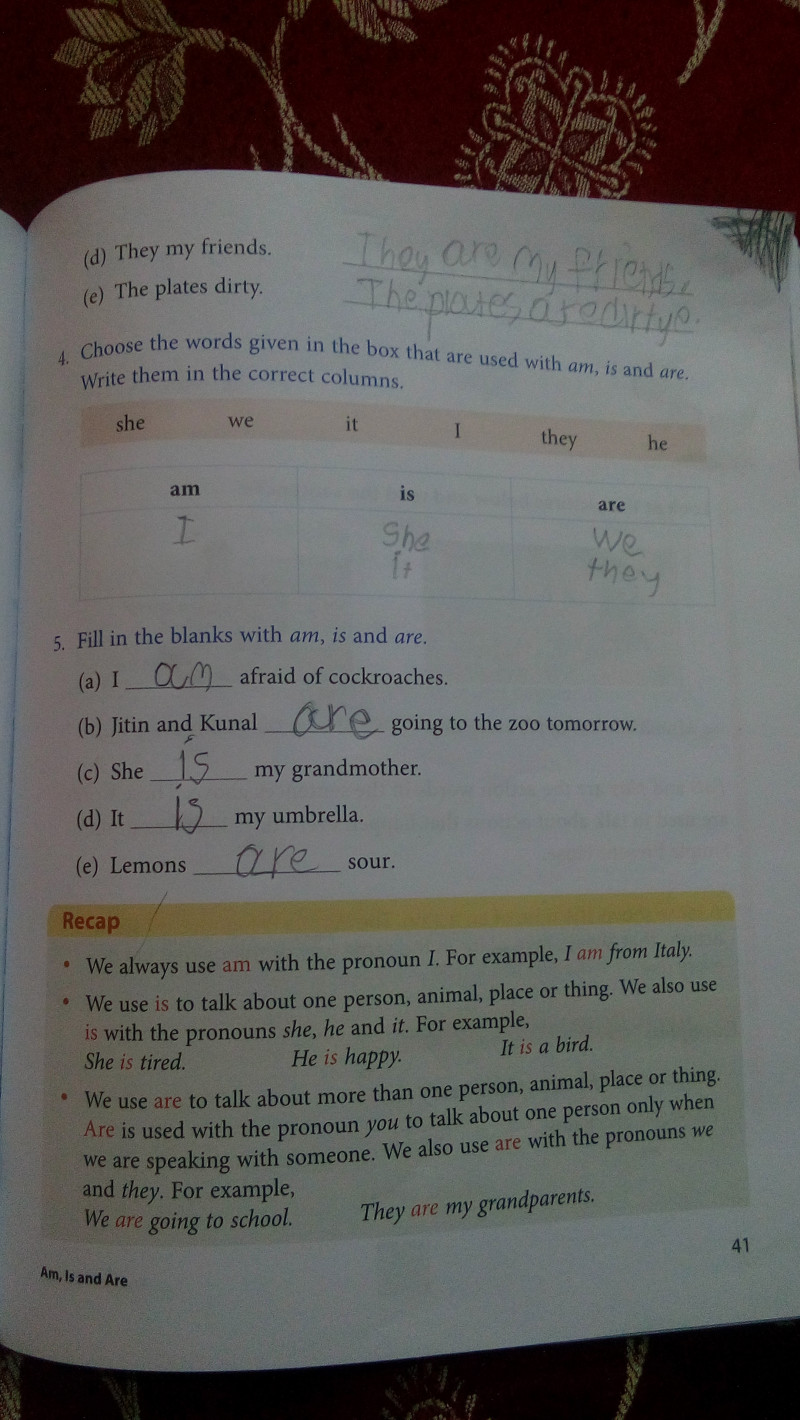 (d) They my friends. They are my friends.
(e) The plates dirty. The plates are dirtye.
4. Choose the words given in the box that are used with am, is and are.
Write them in the correct columns.
she we it I they he
am is are
I She We
It they
5. Fill in the blanks with am, is and are.
(a) I am afraid of cockroaches.
(b) Jitin and Kunal are going to the zoo tomorrow.
(c) She is my grandmother.
(d) It is my umbrella.
(e) Lemons are sour.
Recap
• We always use am with the pronoun I. For example, I am from Italy.
• We use is to talk about one person, animal, place or thing. We also use
is with the pronouns she, he and it. For example,
She is tired. He is happy. It is a bird.
• We use are to talk about more than one person, animal, place or thing.
Are is used with the pronoun you to talk about one person only when
we are speaking with someone. We also use are with the pronouns we
and they. For example,
We are going to school. They are my grandparents.
41
Am, Is and Are